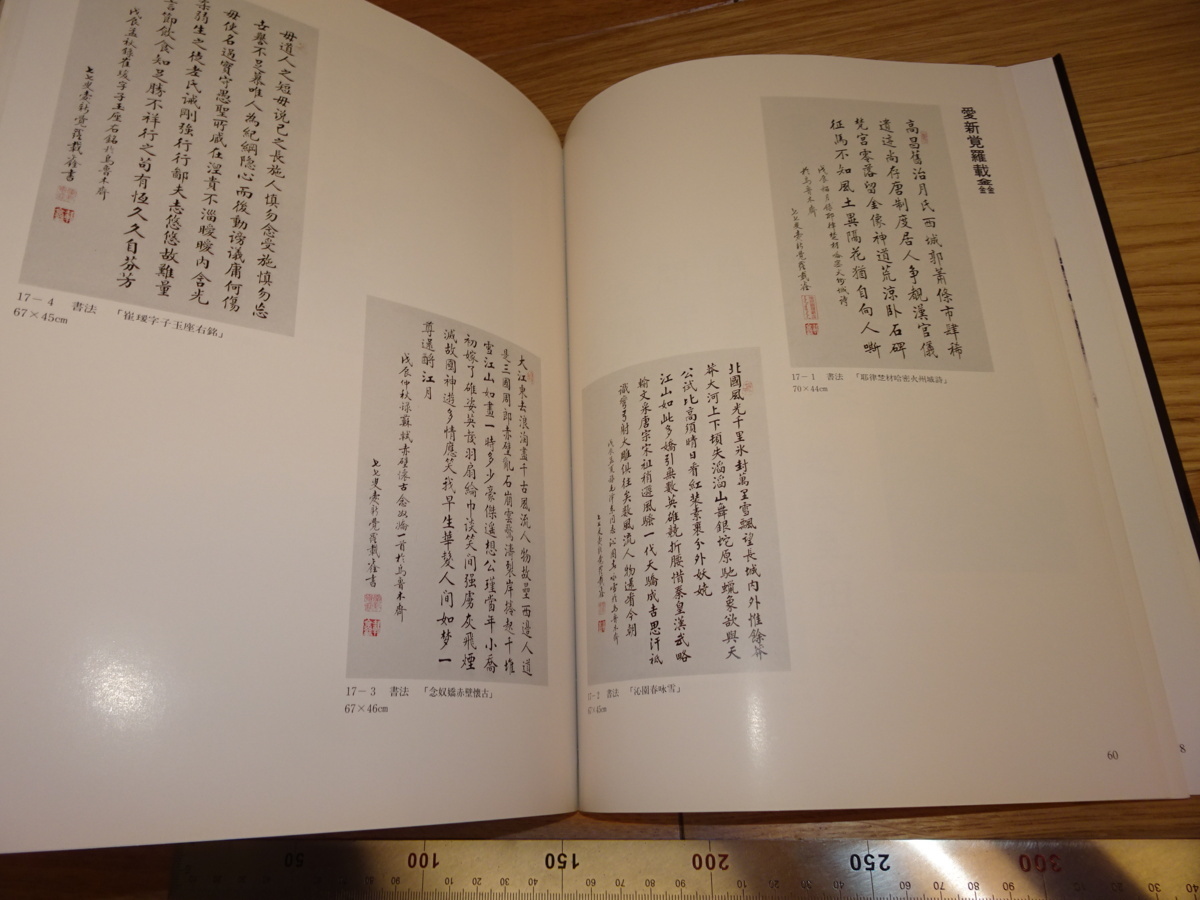 愛新覚羅載鑫
高昌舊治月氏西城郭蕭條市肆稀
遺迹尚存唐制度居人争覩漢官儀
梵宮零落留金像神道荒涼卧石碑
征馬不知風土異隔花猶自向人嘶
17－1 書法 「耶律楚材哈密火州城詩」
70×44cm
北國風光千里氷封萬里雪飄望長城内外惟餘莽
莽大河上下頓失滔滔山舞銀蛇原馳蠟象欲與天
公試比高須晴日看紅装素裹分外妖嬈
江山如此多嬌引無數英雄競折腰惜秦皇漢武略
輸文采唐宗宋祖稍遜風騷一代天驕成吉思汗祇
識彎弓射大雕俱往矣數風流人物還看今朝
17－2 書法 「沁園春咏雪」
67×45cm
大江東去浪淘盡千古風流人物故壘西邊人道
是三國周郎赤壁亂石崩雲驚濤裂岸捲起千堆
雪江山如畫一時多少豪傑遥想公瑾當年小喬
初嫁了雄姿英發羽扇綸巾談笑間强虜灰飛煙
滅故國神遊多情應笑我早生華髮人間如梦一
尊還酹江月
戊辰仲秋録蘇軾赤壁懷古念奴嬌一首於烏魯木齊
七七叟愛新覺羅載鑫書
17－3 書法 「念奴嬌赤壁懐古」
67×46cm
毋道人之短毋説己之長施人慎勿念受施慎勿忘
古譽不足慕唯人為紀綱隐心而後動謗議庸何傷
毋使名過實守愚聖所臧在涅貴不淄曖曖内含光
柔弱生之徒老氏誡剛強行行鄙夫志悠悠故難量
言節飲食知足勝不祥行之苟有恆久久自芬芳
戊辰孟秋録崔瑗字子玉座右銘於烏魯木齊
七七叟愛新覺羅載鑫書
17－4 書法 「崔瑗字子玉座右銘」
67×45cm
60
8
50
100
150
200
250
300